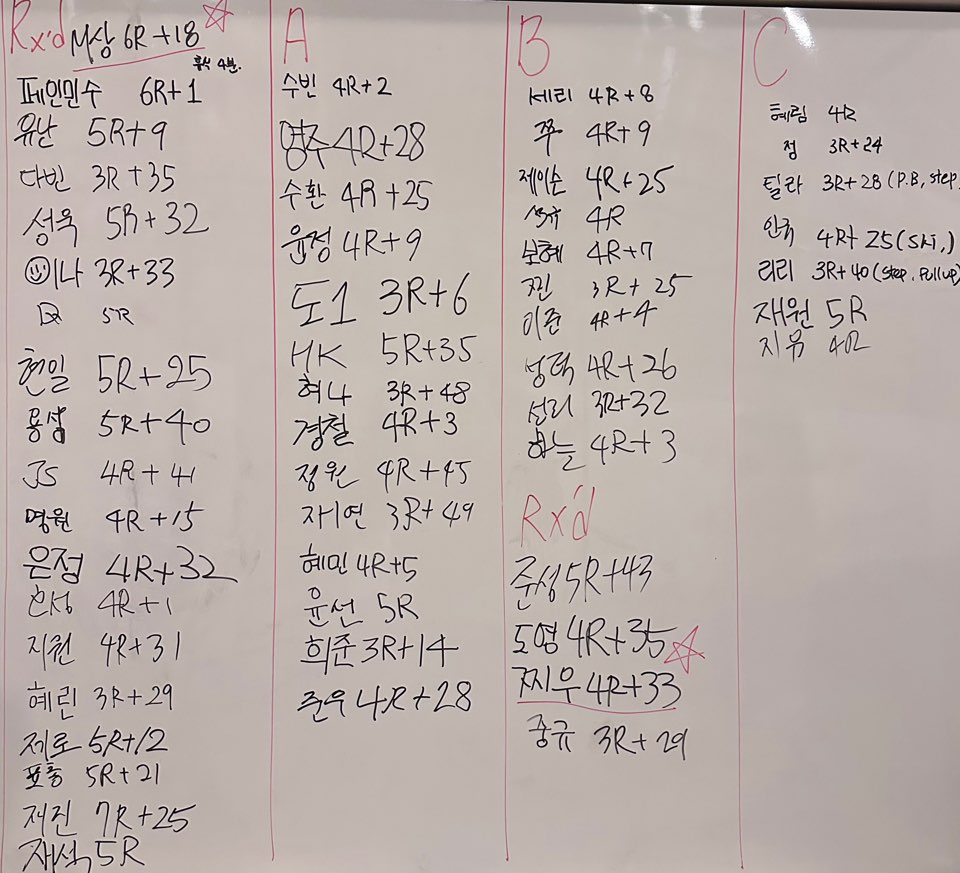 Rx'd M상 6R+18
휴식 4분.
페인민수 6R+1
유난 5R+9
다빈 3R+35
성욱 5R+32
이나 3R+33
5R
현일 5R+25
용삼 5R+40
JS 4R+41
명원 4R+15
은정 4R+32
한성 4R+1
지원 4R+31
혜린 3R+29
제로 5R+12
표총 5R+21
재진 7R+25
재석 5R
A
수빈 4R+2
영주 4R+28
수환 4R+25
윤정 4R+9
도1 3R+6
HK 5R+35
혀나 3R+48
경철 4R+3
정원 4R+45
재연 3R+49
혜민 4R+5
윤선 5R
희준 3R+14
준우 4R+28
B
세리 4R+8
쭈 4R+9
제이슨 4R+25
4R
보혜 4R+7
찐 3R+25
이준 4R+4
성덕 4R+26
섭리 3R+32
하늘 4R+3
Rx'd
준성 5R+43
도영 4R+35
찌우 4R+33
중규 3R+29
C
혜림 4R
정 3R+24
틸라 3R+28 (P.B, step.
안국 4R+25
리리 3R+40 (step. Pull up)
재원 5R
지유 4R